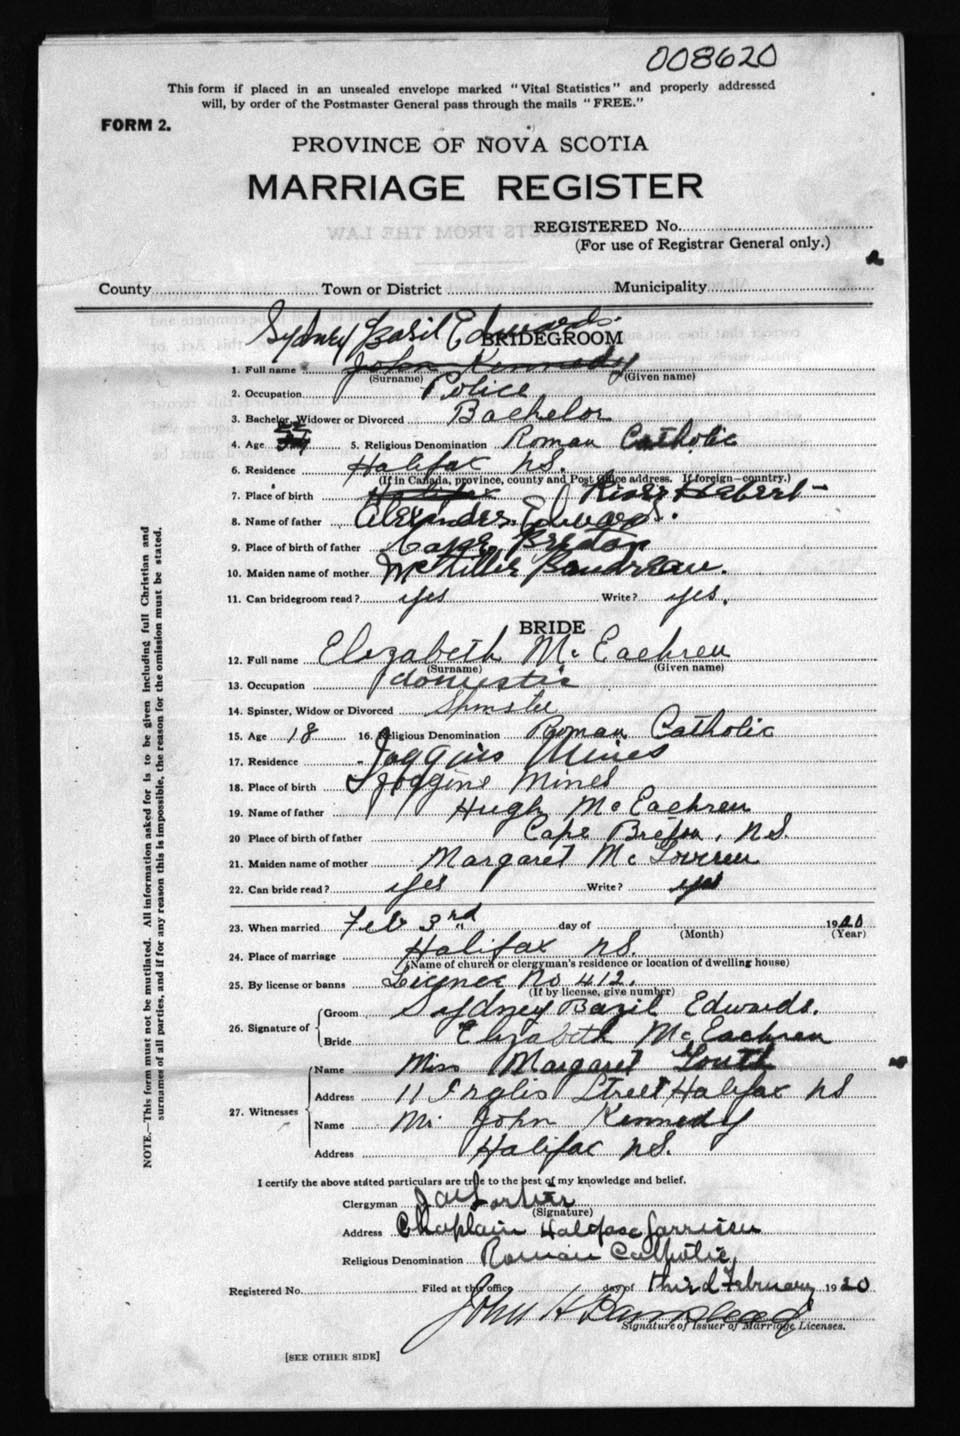 008620
This form if placed in an unsealed envelope marked "Vital Statistics" and properly addressed
will, by order of the Postmaster General pass through the mails "FREE."
FORM 2.
PROVINCE OF NOVA SCOTIA
MARRIAGE REGISTER
REGISTERED No.
(For use of Registrar General only.)
County Town or District Municipality
Sydney Basil Edwards
BRIDEGROOM
1. Full name John Kennedy
(Surname) (Given name)
2. Occupation Police
3. Bachelor, Widower or Divorced Bachelor
22
4. Age 5. Religious Denomination Roman Catholic
6. Residence Halifax NS.
(If in Canada, province, county and Post Office address. If foreign—country.)
7. Place of birth Halifax River Hebert
8. Name of father Alexander Edwards.
9. Place of birth of father Cape Breton
10. Maiden name of mother Boudreau.
11. Can bridegroom read? yes Write? yes.
BRIDE
12. Full name Elizabeth McEachren
(Surname) (Given name)
13. Occupation domestic
14. Spinster, Widow or Divorced Spinster
15. Age 18 16. Religious Denomination Roman Catholic
17. Residence Joggins Mines
18. Place of birth Joggins Mines
19. Name of father Hugh McEachren
20 Place of birth of father Cape Breton, NS.
21. Maiden name of mother Margaret
22. Can bride read? yes Write? yes
23. When married Feb 3rd day of 1920
(Month) (Year)
24. Place of marriage Halifax NS.
(Name of church or clergyman's residence or location of dwelling house)
25. By license or banns License No 412.
(If by license, give number)
26. Signature of Groom Sydney Bazil Edwards.
Bride Elizabeth McEachren
27. Witnesses Name Miss Margaret
Address 11 Inglis Street Halifax NS
Name Mr John Kennedy
Address Halifax NS.
I certify the above stated particulars are true to the best of my knowledge and belief.
Clergyman
(Signature)
Address Chaplain Halifax Garrison
Religious Denomination Roman Catholic
Registered No. Filed at the office day of third February 1920
John H
Signature of Issuer of Marriage Licenses.
[SEE OTHER SIDE]
NOTE.—This form must not be mutilated. All information asked for is to be given including full Christian and
surnames of all parties, and if for any reason this is impossible, the reason for the omission must be stated.